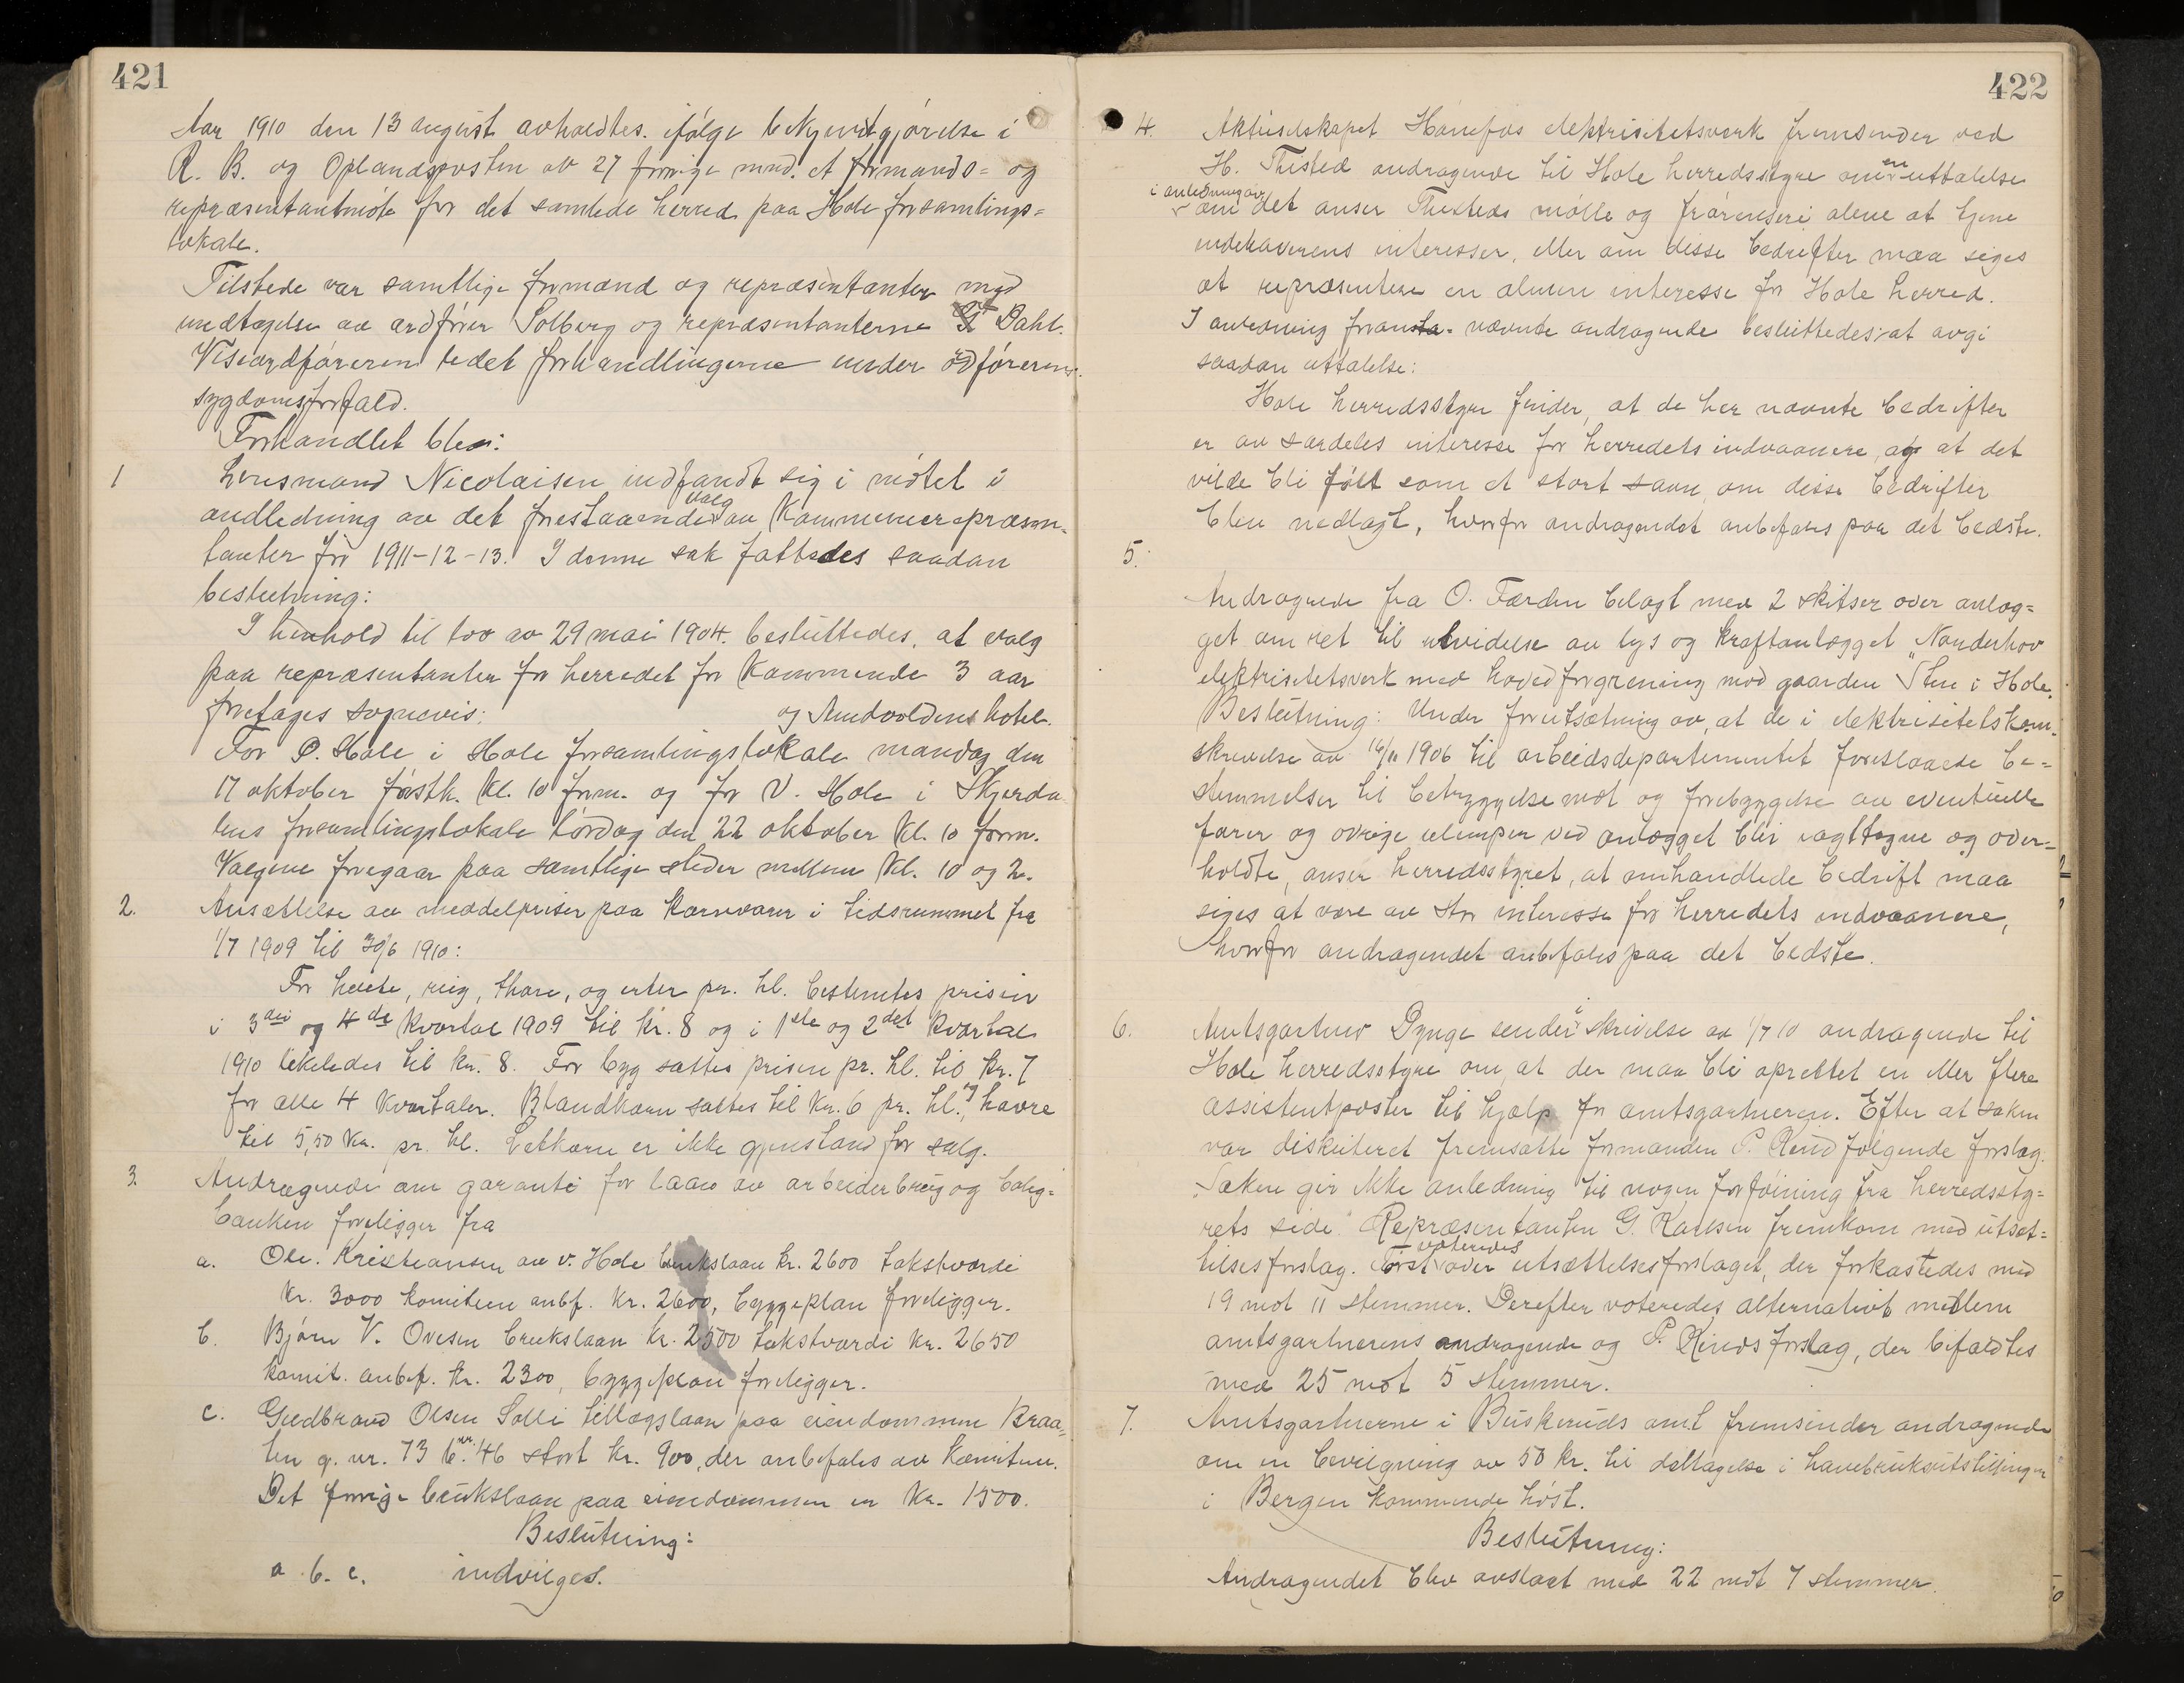 421
Aar 1910 den 13 august avholdtes. ifølge bekjendtgjørelse i
R. B. og Oplandsposten av 27 forrige mnd. et formands= og
repræsentantmöte for det samlede herred paa Hole forsamlings=
lokale.
Tilstede var samtlige formænd og repræsentanter med
undtagelse av ordfører Solberg og repræsentanterne Dahl.
Viseordføreren ledet forhandlingerne under ordførerens
sygdomsforfald.
Forhandlet blev:
1 Lensmand Nicolaisen indfandt sig i mötet i
andledning av det forestaaende valg av kommunerepræsen-
tanter for 1911-12-13. I denne sak fattedes saadan
beslutning:
I henhold til lov av 29 mai 1904. besluttedes, at valg
paa repræsentanter for herredet for kommende 3 aar
foretages sognevis:
og Sundvoldens hotel.
For P. Hole i Hole forsamlingslokale mandag den
17 oktober förstk. kl. 10 form. og for V. Hole i Skjærda
lens forsamlingslokale lördag den 22 oktober kl. 10 form.
Valgene foregaar paa samtlige steder mellem kl. 10 og 2.
2. Ansættelse av meddelpriser paa kornvarer i tidsrummet fra
1/7 1909 til 30/6 1910:
For hvete, rug, og erter pr. hl. bestemtes prisen
i 3die og 4de kvartal 1909 til kr. 8 og i 1ste og 2det kvartal
1910 likeledes til kr. 8. For byg sattes prisen pr. hl. til kr. 7
for alle 4 kvartaler. Blandkorn sattes til kr. 6 pr. hl., og havre
til 5,50 kr. pr. hl. Letkorn er ikke gjenstand for salg.
3. Andragende om garanti for laan av arbeiderbrug og bolig=
banken foreligger fra
a. Ole. Kristiansen av v. Hole brukslaan kr. 2600 takstværdi
kr. 3000 komiteen anbf. kr. 2600, byggeplan foreligger.
b. Bjørn V. Ovesen brukslaan kr. 2500 takstværdi kr. 2650
komit. anbef. kr. 2300, byggeplan foreligger.
c. Gudbrand Olsen Solli tillægslaan paa eiendommen Braa=
ten g. nr. 73 b. nr. 46 stort kr. 900, der anbefales av komiteen.
Det forrige brukslaan paa eiendommen er kr. 1500.
Beslutning:
a. b. c. indvilges.
422
4. Aktieselskapet Hönefos elektrisitetsverk fremsender ved
H. Thisted andragende til Hole herredsstyre om en uttalelse
i anledning av
om det anser Thisteds mölle og alene at tjene
indehaverens interesser, eller om disse bedrifter maa siges
at repræsentere en almen interesse for Hole herred.
I anledning foran nævnte andragende besluttedes at avgi
saadan uttalelse:
Hole herredsstyre finder, at de her nævnte bedrifter
er av særdeles interesse for herredets indvaanere, og at det
vilde bli fölt som et stort savn, om disse bedrifter
blev nedlagt, hvorfor andragendet anbefales paa det bedste.
5.
Andragende fra O. Færden bilagt med 2 skitser over anlæg=
get om ret til utvidelse av lys og kraftanlægget „Norderhov
elektrisitetsverk med hovedforgrening mod gaarden Sten i Hole.
Beslutning: Under forutsætning av, at de i elektrisitetskom.
skrivelse av 16/11 1906 til arbeidsdepartementet foreslaaede be=
stemmelser til betryggelse mot og forebyggelse av eventuelle
farer og övrige ulemper ved anlægget blir iagttagne og over=
holdte, anser herredsstyret, at omhandlede bedrift maa
siges at være av stor interesse for herredets indvaanere,
hvorfor andragendet anbefales paa det bedste.
6. Amtsgartner Dynge sender i skrivelse av 1/7 10 andragende til
Hole herredsstyre om, at der maa bli oprettet en eller flere
assistentposter til hjælp for amtsgartneren. Efter at saken
var diskuteret fremsatte formanden P. Rud følgende forslag.
„Saken gir ikke anledning til nogen forföining fra herredssty=
rets side." Repræsentanten G. Karlsen fremkom med utsæt=
telsesforslag. Först voteredes over utsættelsesforslaget, der forkastedes med
19 mot 11 stemmer. Derefter voteredes alternativt mellem
amtsgartnerens andragende og P. Ruds forslag, der bifaldtes
med 25 mot 5 stemmer.
7. Amtsgartnerne i Buskeruds amt fremsender andragende
om en bevilgning av 50 kr. til deltagelse i havebruksutstillingen
i Bergen kommende höst.
Beslutning:
Andragendet blev avslaat med 22 mot 7 stemmer.